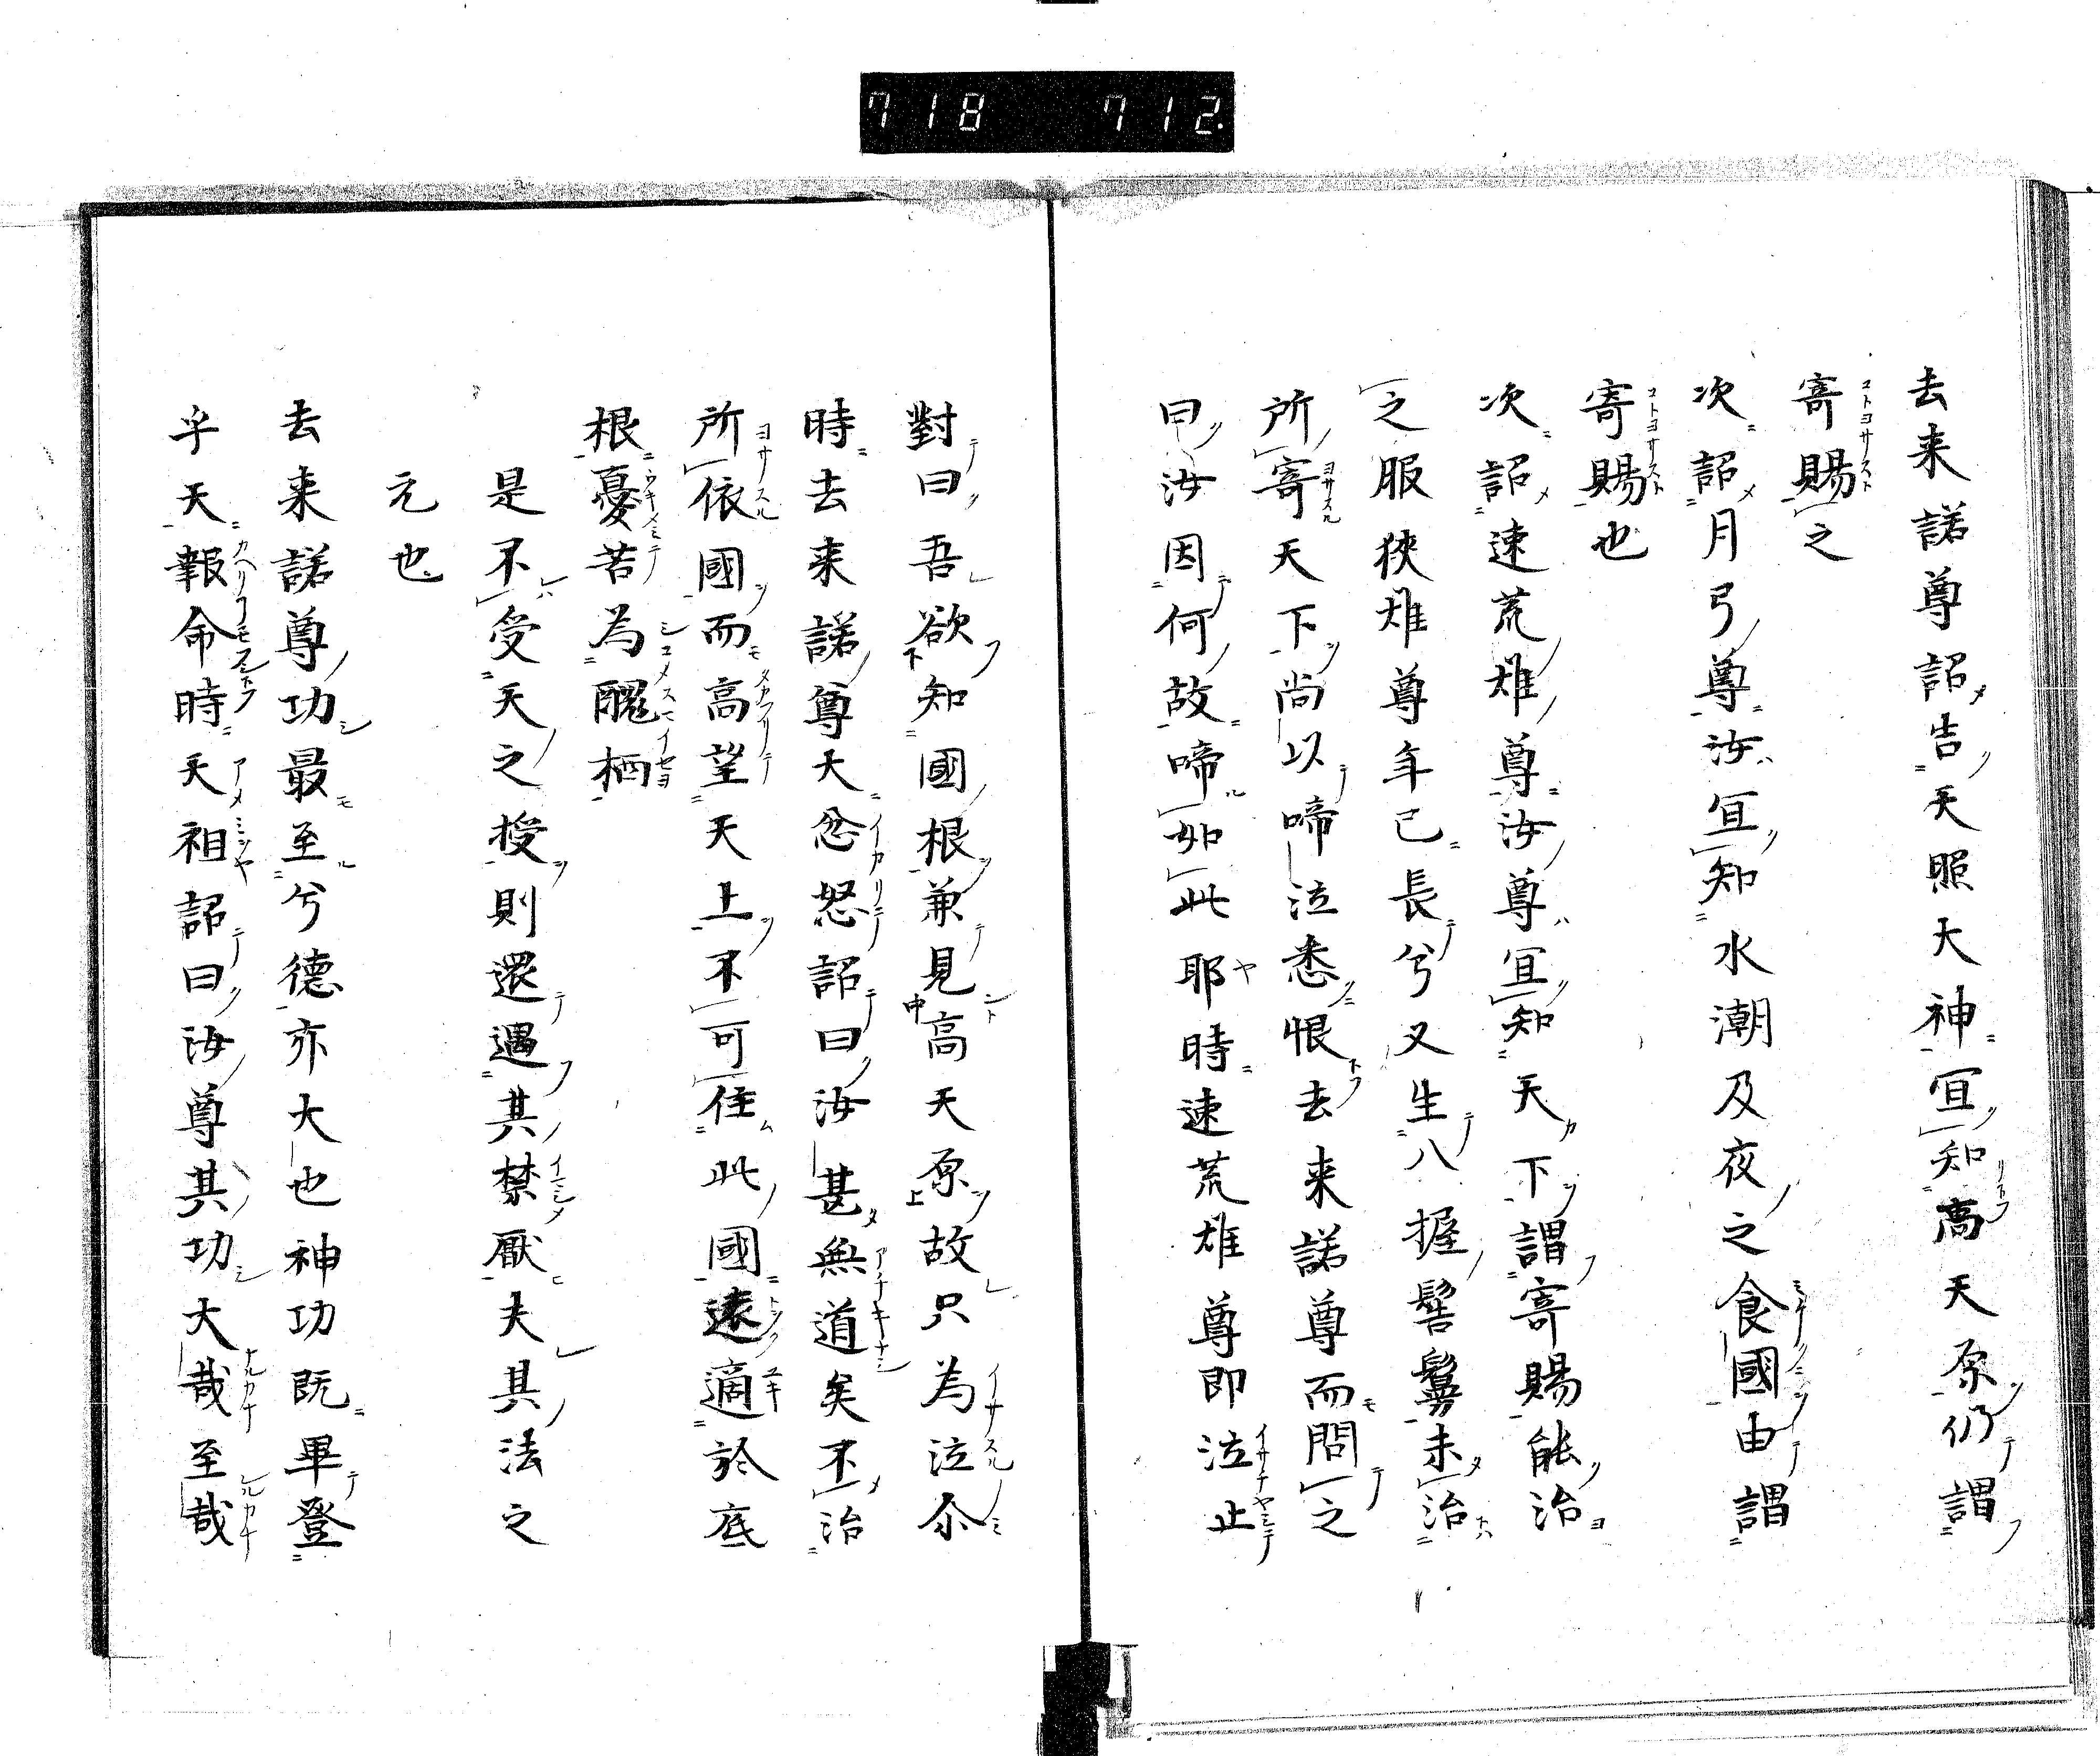 718 712.
去来諾尊詔告天照大神宜知高天原仍謂
寄賜之
次詔月弓尊汝宜知水潮及夜之食國由謂
寄賜也
次詔速荒雄尊汝尊宜知天下謂寄賜能治
之服狹雄尊年已長兮又生八握髯鬘未治
所寄天下尚以啼泣恚恨去来諾尊而問之
曰汝因何故啼如此耶時速荒雄尊即泣止
對曰吾欲知國根兼見高天原故只為泣尒
時去来諾尊大忿怒詔曰汝甚無道矣不治
所依國而高望天上不可住此國遠適於底
根憂苦為醜栖
是不受天之授則還遇其禁厭夫其法之
元也
去来諾尊功最至兮德亦大也神功既畢登
乎天報命時天祖詔曰汝尊其功大哉至哉